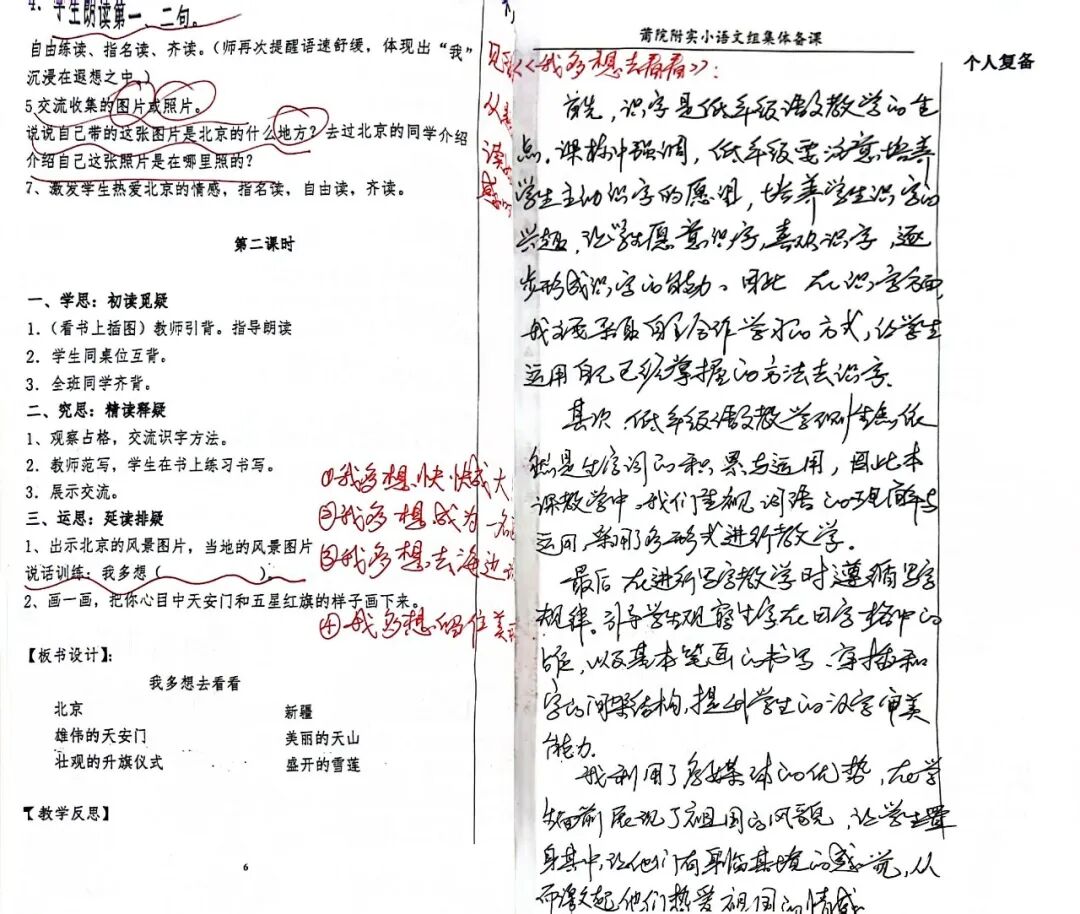 4. 学生朗读第一、二句。
自由练读、指名读、齐读。（师再次提醒语速舒缓，体现出“我”
沉浸在遐想之中。）
5 交流收集的图片或照片。
说说自己带的这张图片是北京的什么地方？去过北京的同学介绍
介绍自己这张照片是在哪里照的？
7、激发学生热爱北京的情感，指名读，自由读，齐读。
第二课时
一、学思：初读觅疑
1.（看书上插图）教师引背。指导朗读
2. 学生同桌位互背。
3. 全班同学齐背。
二、究思：精读释疑
1、观察占格，交流识字方法。
2. 教师范写，学生在书上练习书写。
3. 展示交流。
三、运思：延读排疑
1、出示北京的风景图片，当地的风景图片
说话训练：我多想（ ）。
2、画一画，把你心目中天安门和五星红旗的样子画下来。
①我多想快快成大
②我多想成为一名
③我多想去海边
④我多想
【板书设计】：
我多想去看看
北京 新疆
雄伟的天安门 美丽的天山
壮观的升旗仪式 盛开的雪莲
【教学反思】
6
莆院附实小语文组集体备课
个人复备
《我多想去看看》：
首先，识字是低年级语文教学的重
点。课标中强调，低年级要注意培养
学生主动识字的愿望，培养学生识字的
兴趣，让学生愿意识字，喜欢识字，逐
步形成识字的能力。因此 在识字方面
我主要采取自主合作学习的方式，让学生
运用自己已经掌握的方法去识字。
其次 低年级语文教学 依
然是生字词的积累与运用，因此本
课教学中，我们重视词语的理解与
运用，采用了多形式进行教学。
最后 在进行写字教学时遵循写字
规律。引导学生观察生字在田字格中的
占位，以及基本笔画的书写、穿插和
字的间架结构，提升学生的汉字审美
能力。
我利用了多媒体的优势，在学
生面前展现了祖国的风貌，让学生置
身其中，让他们有身临其境的感觉，从
而激发起他们热爱祖国的情感